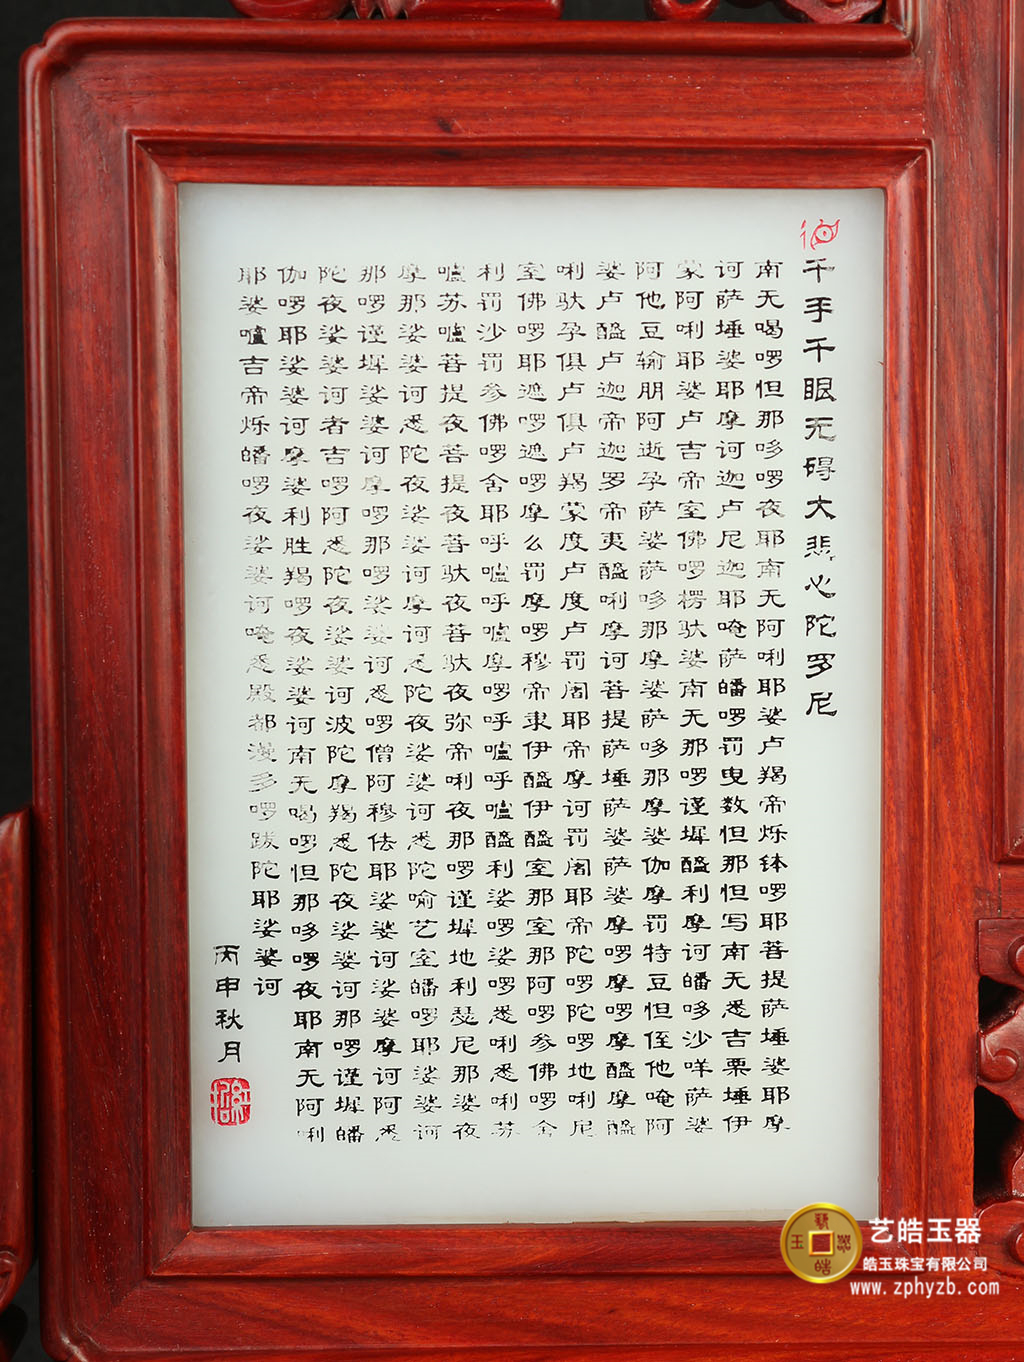 千手千眼无碍大悲心陀罗尼
南无喝啰怛那哆啰夜耶南无阿唎耶婆卢羯帝烁钵啰耶菩提萨埵婆耶摩
诃萨埵婆耶摩诃迦卢尼迦耶唵萨皤啰罚曳数怛那怛写南无悉吉栗埵伊
蒙阿唎耶婆卢吉帝室佛啰楞驮婆南无那啰谨墀醯利摩诃皤哆沙咩萨婆
阿他豆输朋阿逝孕萨婆萨哆那摩婆萨哆那摩婆伽摩罚特豆怛侄他唵阿
婆卢醯卢迦帝迦罗帝夷醯唎摩诃菩提萨埵萨婆萨婆摩啰摩啰摩醯摩醯
唎驮孕俱卢俱卢羯蒙度卢度卢罚阇耶帝摩诃罚阇耶帝陀啰陀啰地唎尼
室佛啰耶遮啰遮啰摩么罚摩啰穆帝隶伊醯伊醯室那室那阿啰参佛啰舍
利罚沙罚参佛啰舍耶呼嚧呼嚧摩啰呼嚧呼嚧醯利娑啰娑啰悉唎悉唎苏
嚧苏嚧菩提夜菩提夜菩驮夜菩驮夜弥帝唎夜那啰谨墀地利瑟尼那婆夜
摩那娑婆诃悉陀夜娑婆诃摩诃悉陀夜娑婆诃悉陀喻艺室皤啰耶娑婆诃
那啰谨墀娑婆诃摩啰那啰娑婆诃悉啰僧阿穆佉耶娑婆诃娑婆摩诃阿悉
陀夜娑婆诃者吉啰阿悉陀夜娑婆诃波陀摩羯悉陀夜娑婆诃那啰谨墀皤
伽啰耶娑婆诃摩婆利胜羯啰夜娑婆诃南无喝啰怛那哆啰夜耶南无阿唎
耶婆嚧吉帝烁皤啰夜娑婆诃唵悉殿都漫多啰跋陀耶娑婆诃
丙申秋月
艺皓玉器
皓玉珠宝有限公司
www.zphyzb.com